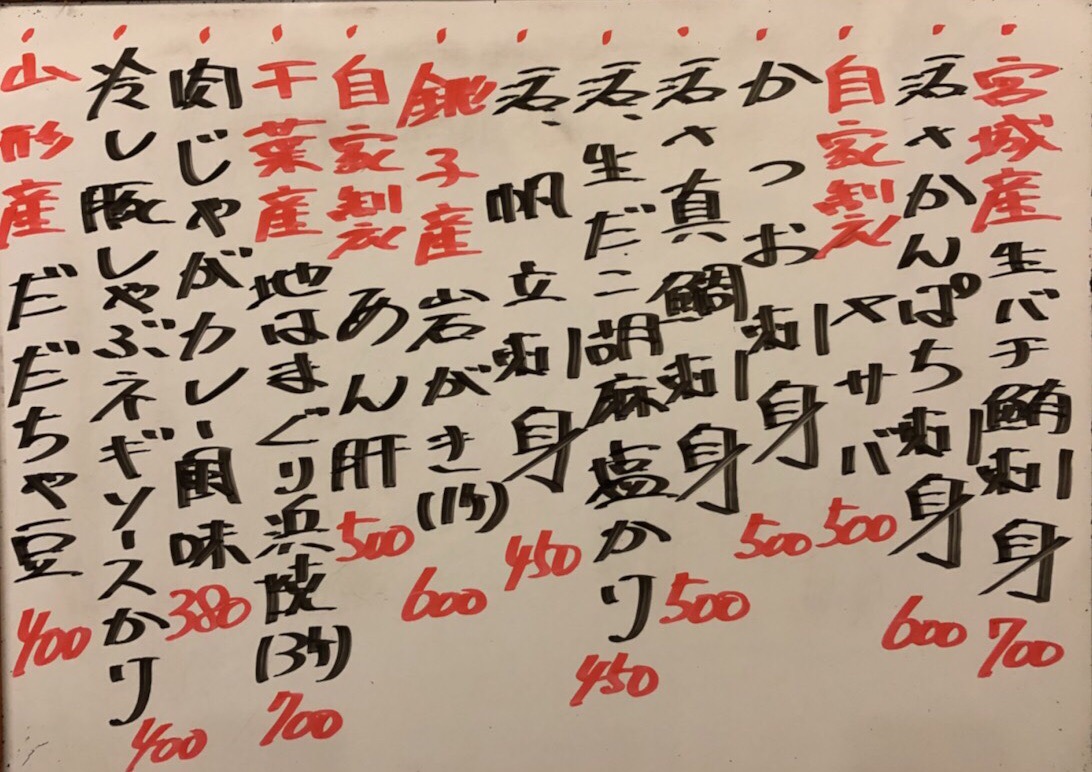 宮城産生バチ鮪刺身 700
活〆かんぱち刺身 600
自家製〆サバ 500
かつお刺身 500
活〆真鯛刺身 500
活、生だこ胡麻塩かけ 450
活、帆立刺身 450
銚子産岩がき(1ケ) 600
自家製あん肝 500
千葉産地はまぐり浜焼(3ケ) 700
肉じゃがカレー風味 380
冷し豚しゃぶネギソースかけ 400
山形産だだちゃ豆 400